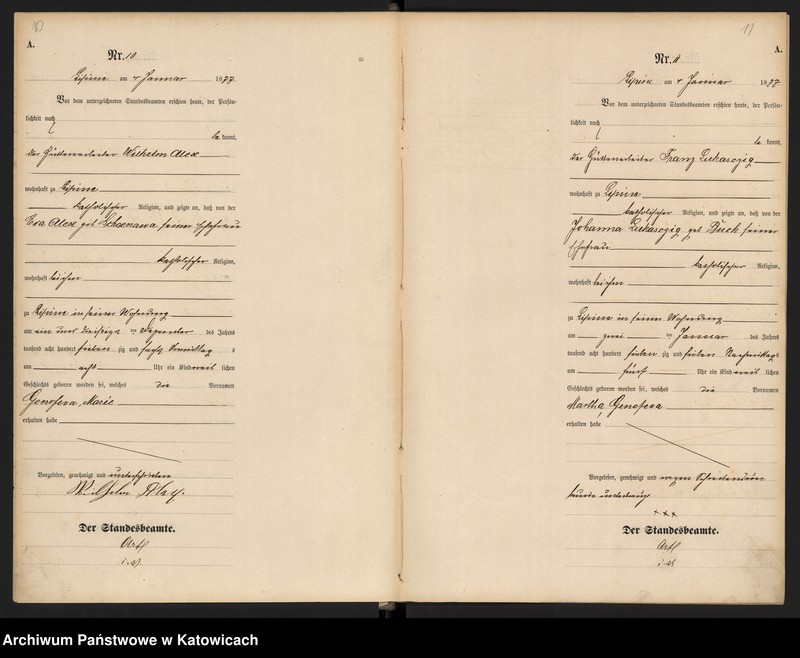 10
A.
Nr. 10
Lipine am 4 Januar 1877
Vor dem unterzeichneten Standesbeamten erschien heute, der Persön-
lichkeit nach
be kannt,
der Hüttenarbeiter Wilhelm Alex
wohnhaft zu Lipine
katholischer Religion, und zeigte an, daß von der
Eva Alex geb Schoenawa seiner Ehefrau
katholischer Religion,
wohnhaft bei ihm
zu Lipine in seiner Wohnung
am ein und dreißigsten Dezember des Jahres
tausend acht hundert sieben zig und sechs Vormittag s
um acht Uhr ein Kind weib lichen
Geschlechts geboren worden sei, welches die Vornamen
Genofeva, Marie
erhalten habe
Vorgelesen, genehmigt und unterschrieben
Wilhelm Alex.
Der Standesbeamte.
i. V.
11
A.
Nr. 11
Lipine am 4 Januar 1877
Vor dem unterzeichneten Standesbeamten erschien heute, der Persön-
lichkeit nach
be kannt,
der Hüttenarbeiter Franz Lukasczig
wohnhaft zu Lipine
katholischer Religion, und zeigte an, daß von der
Johanna Lukasczig geb seiner
Ehefrau
katholischer Religion,
wohnhaft bei ihm
zu Lipine in seiner Wohnung
am zwei ten Januar des Jahres
tausend acht hundert sieben zig und sieben Nachmittags
um fünf Uhr ein Kind weib lichen
Geschlechts geboren worden sei, welches die Vornamen
Martha, Genofeva
erhalten habe
Vorgelesen, genehmigt und wegen Schreibensun
kunde unterkreuzt
+++
Der Standesbeamte.
i. V.
Archiwum Państwowe w Katowicach